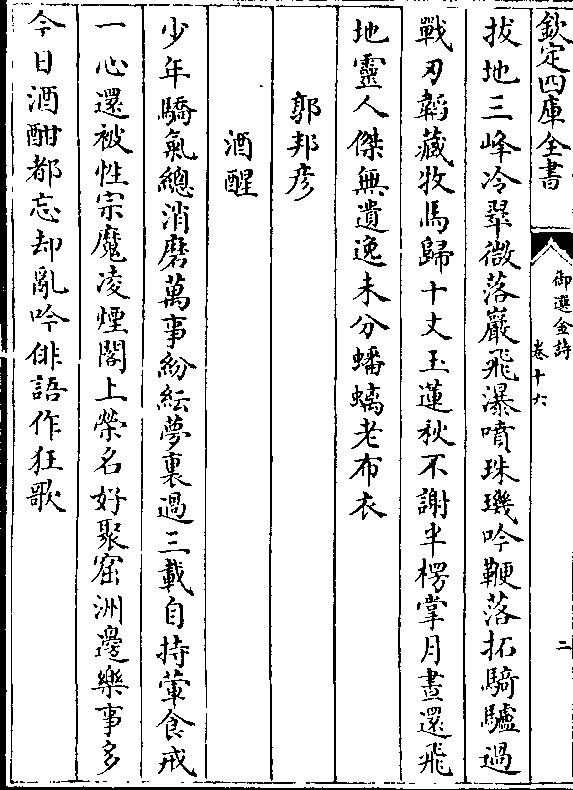 欽定四庫全書
御選金詩
卷十六
二
拔地三峰冷翠微落巖飛瀑噴珠璣吟鞭落拓騎驢過
戰刃韜藏牧馬歸十丈玉蓮秋不謝半楞掌月晝還飛
地靈人傑無遺逸未分蟠螭老布衣
郭邦彦
酒醒
少年驕氣總消磨萬事紛紜夢裏過三載自持葷食戒
一心還被性宗魔凌煙閣上榮名好聚窟洲邊樂事多
今日酒酣都忘却亂吟俳語作狂歌